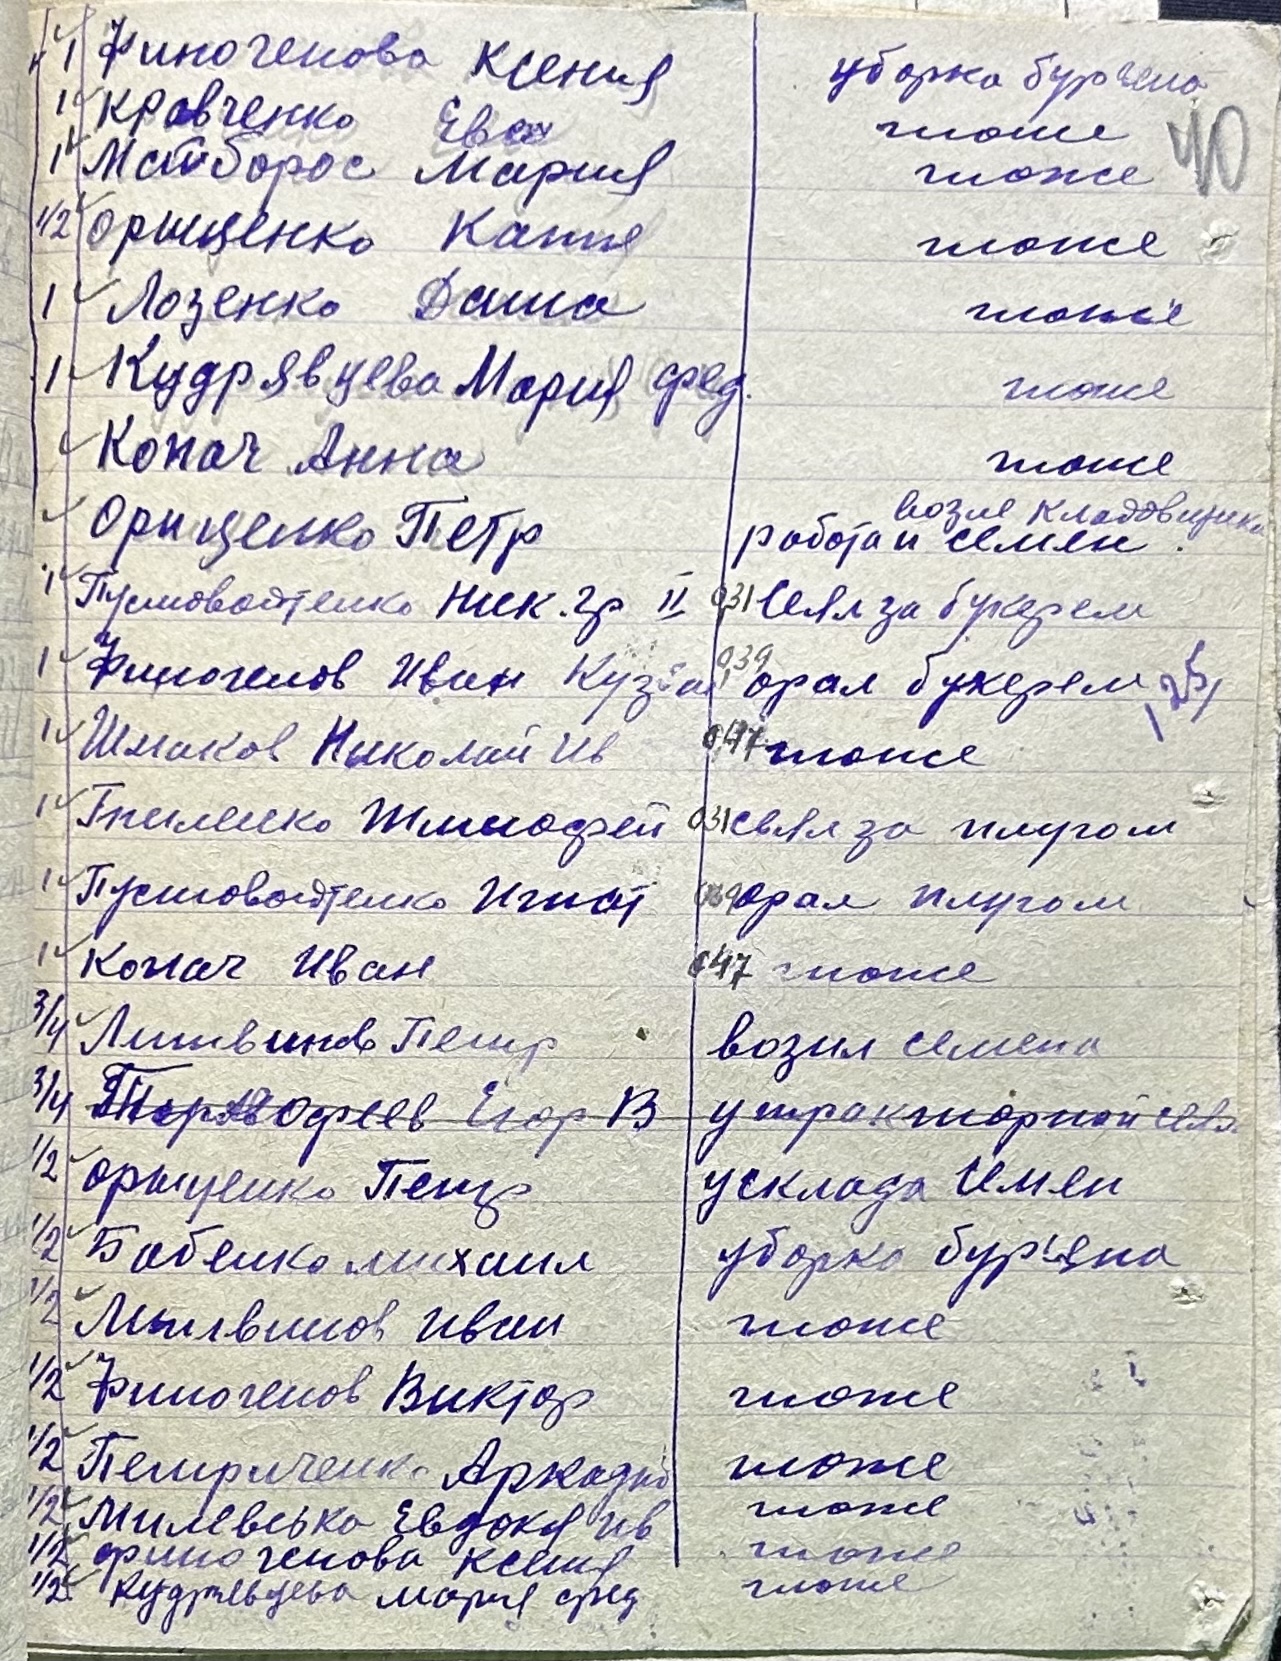 1 Финогенова Ксения уборка бурьяна
1 Кравченко Ева тоже
40
1 Матборос Мария тоже
1/2 Орищенко Катя тоже
1 Лозенко Даша тоже
1 Кудрявцева Мария фед. тоже
Копач Анна тоже
возле кладовщика
Орищенко Петр работа и семен.
1 Пустовойтенко Ник. гр II 031 сеял за букером
1 Финогенов Иван Кузьм 039 орал букером 1,25
1 Шмаков Николай Ив 047 тоже
1 Тимофей 031 сеял за плугом
1 Пустовойтенко Игнат 039 орал плугом
1 Копач Иван 047 тоже
3/4 Литвинов Петр возил семена
3/4 Егор В у тракторной сеял.
1/2 Орищенко Петр у склада семен
1/2 Бабенко михаил уборка бурьяна
1/2 Литвинов Иван тоже
1/2 Финогенов Виктор тоже
1/2 Петриченко Аркадий тоже
1/2 Милевська Евдокия Ив тоже
1/2 финогенова Ксения тоже
1/2 Кудрявцева мария фед тоже